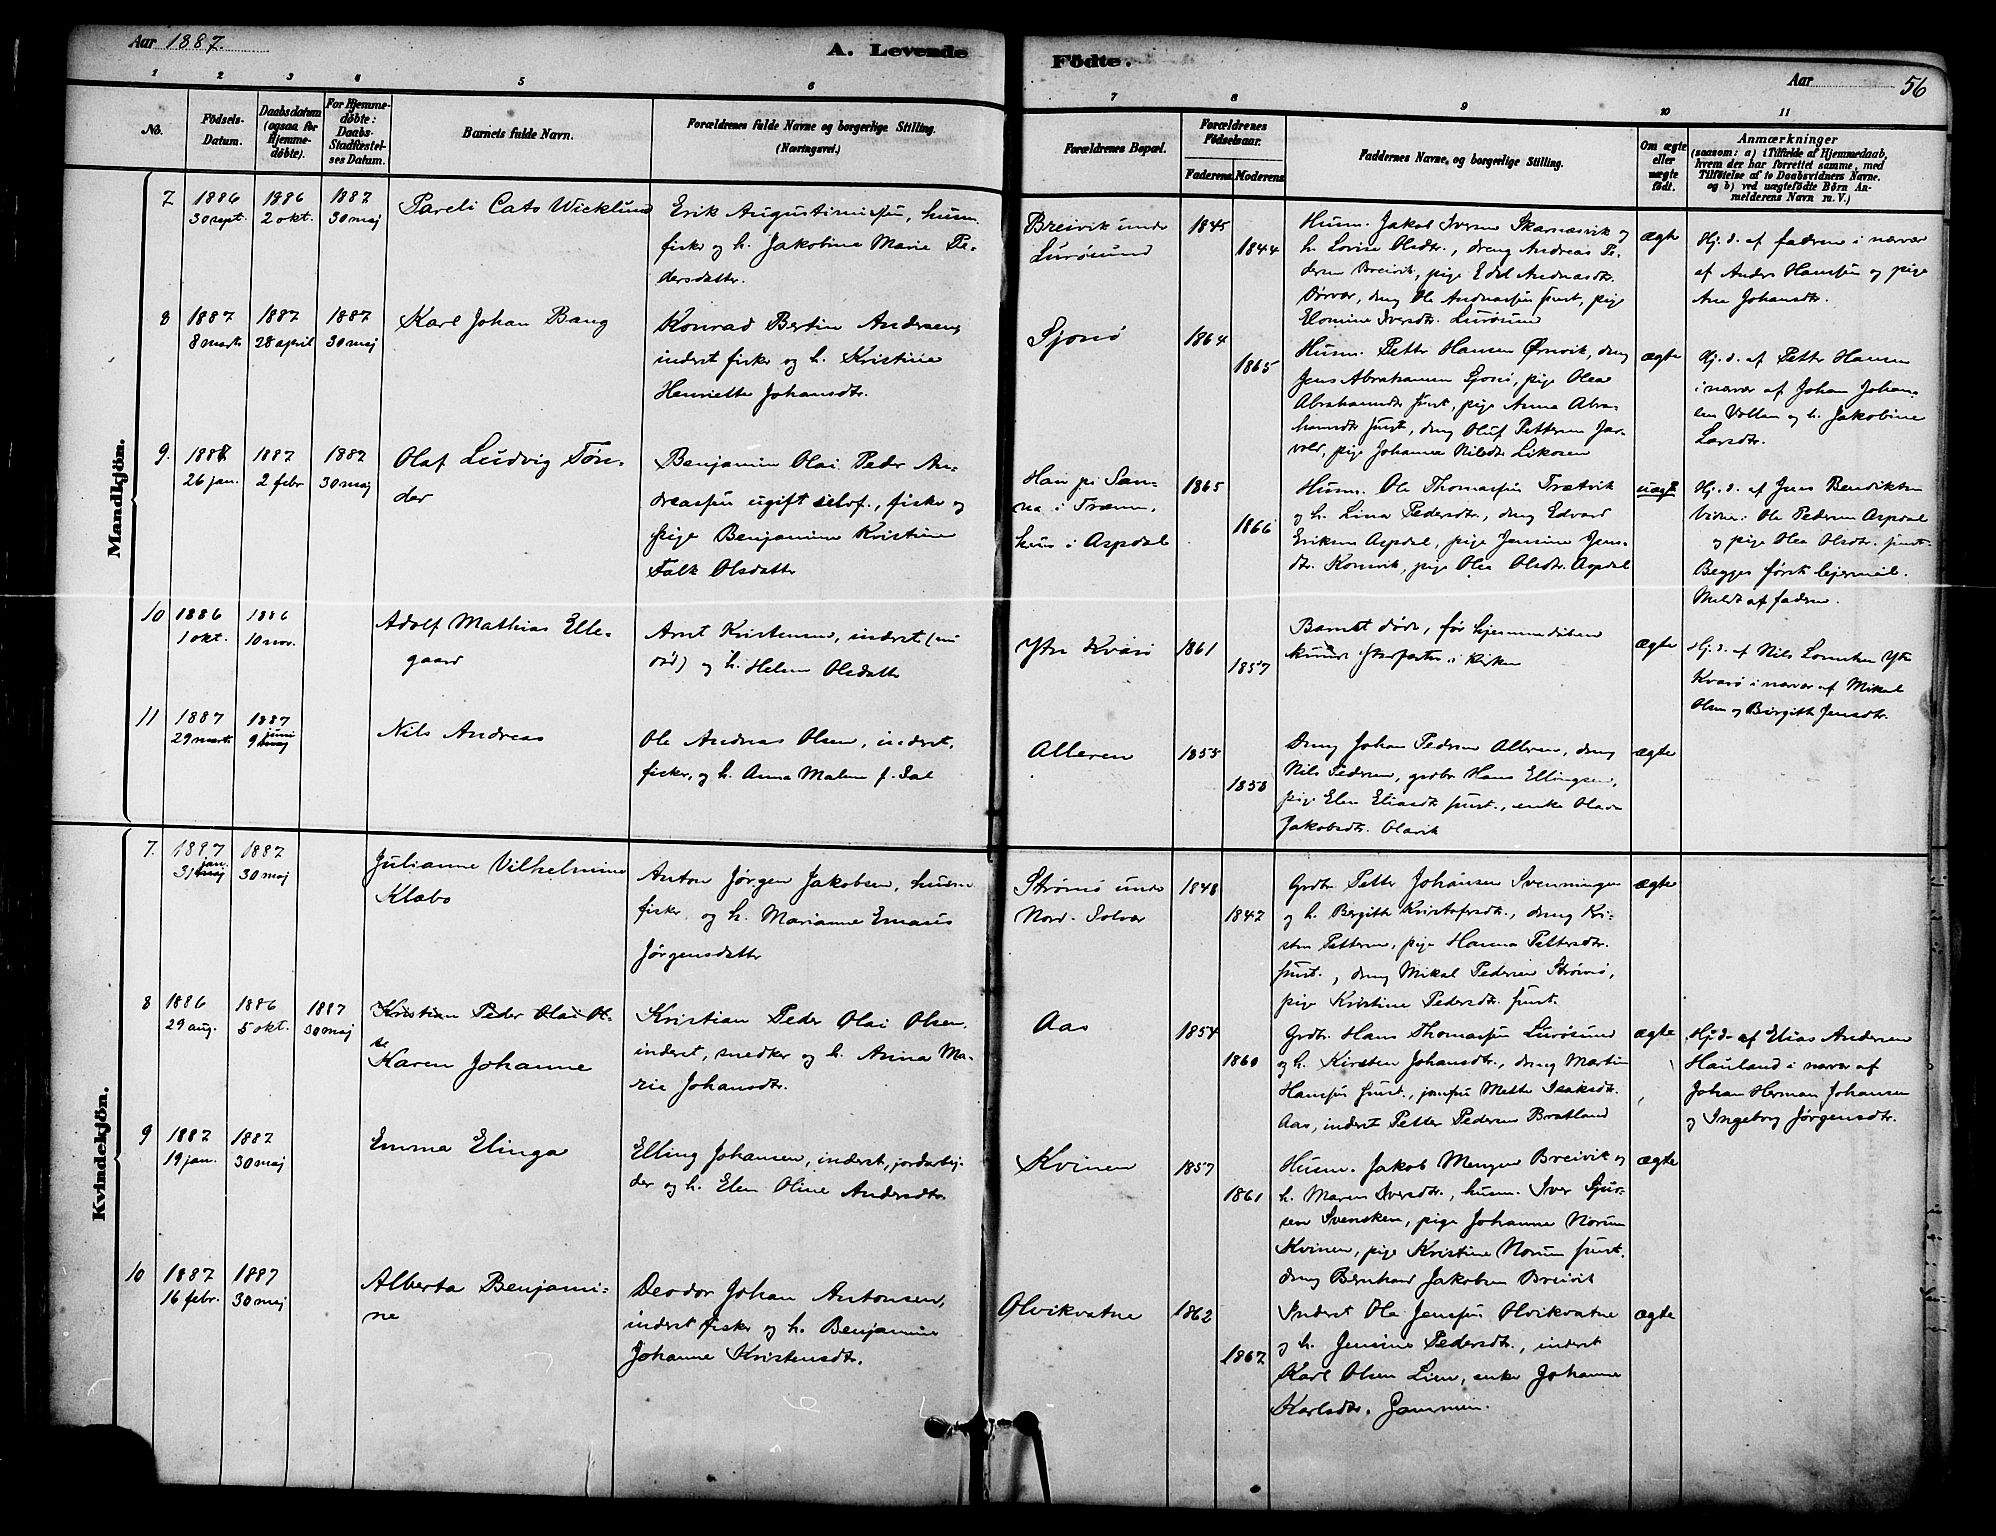 Aar 1887.
A. Levende
Födte.
Aar
56
1 2 3 4 5 6
7 8 9 10 11
No.
Födsels-
Datum.
Daabsdatum
(ogsaa for
Hjemme-
døbte).
For Hjemme-
døbte:
Daabs-
Stadfæstel-
ses Datum.
Barnets fulde Navn.
Forældrenes fulde Navne og borgerlige Stilling.
(Næringsvei.)
Forældrenes Bopæl.
Forældrenes
Födselsaar.
Faderens
Moderens
Faddernes Navne, og borgerlige Stilling.
Om ægte
eller
uægte
födt.
Anmærkninger
(saasom: a) i Tilfælde af Hjemmedaab,
hvem der har forrettet samme, med
Tilføielse af to Daabsvidners Navne.
og b) ved uægtefödte Börn An-
melderens Navn m. V.)
Mandkjön.
7
1886
30 sept.
1886
2 okt.
1887
30 maj
Pareli Cato Wicklund
Erik Augustinussen, husm.
fisker og h. Jakobine Marie Pe-
dersdatter.
Breivik under
Lurøsund
1845
1844
Husm. Jakob Iversen Skarnæsvik og
h. Lovise Olsdtr., dreng Andreas Pe-
dersen Breivik, pige Edel Andreasdtr.
dreng Ole Andreassen smst., pige
Elomine Iversdtr. Lurøsund
ægte
Hj. d. af faderen i nærvær
af Anders Hanssen og pige
Ane Johansdtr.
8
1887
8 marts
1887
28 april
1887
30 maj
Karl Johan Bang
Konrad Bertin Andersen,
inderst fisker og h. Kristine
Henriette Johansdtr.
Sjonø
1864
1865
Husm. Petter Hansen Ørnvik, dreng
Jens Abrahamsen Sjonø, pige Olea
Abrahamsdtr smst., pige Anna Abra-
hamsdtr smst., dreng Oluf Pettersen
pige Johanna Nilsdtr
ægte
Hj. d. af Petter Hansen
i nærvær af Johan Johan-
sen Vollen og h. Jakobine
Larsdtr.
9.
1887
26 jan.
1887
2 febr
1887
30 maj
Olaf Ludvig Tøn-
der
Benjamin Olai Peder An-
dreassen ugift selvf., fisker og
pige Benjamine Kristine
Falk Olsdatter
Han på San-
na i Træna,
hun i Aspdal
1865
1866
Husm. Ole Thomassen Trætvik
og h. Lina Pedersdtr., dreng Edvard
Eriksen Aspdal, pige Jensine Jens-
dtr. Konsvik, pige Olea Olsdtr. Aspdal
uægte
Hj. d. af Jens Bendiktsen
Vidner: Ole Pedersen Aspdal
og pige Olea Olsdtr. smst.
Begges første lejermål.
Meldt af faderen.
10
1886
1 okt.
1886
10 nov.
Adolf Mathias Elle-
gaard
Arnt Kristensen, inderst (nu
død) og h. Helene Olsdatter
Ytre Kvarø
1861
1857
Barnet døde, før hjemmedåben
kunde stadfæstes i kirken
ægte
Hj. d. af Nils Lorntsen Ytre
Kvarø i nærvær af Mikal
Olsen og Birgitte Jensdtr.
11
1887
29 marts
1887
juni
9 maj
Nils Andreas
Ole Andreas Olsen, inderst,
fisker, og h. Anna Malene f. Dal
Alteren
1855
1858
Dreng Johan Pedersen Alteren, dreng
Nils Pedersen, grdbr Hans Ellingsen,
pige Elen Eliasdtr smst., enke Olava
Jakobsdtr. Olavik
ægte
Kvindekjön.
7.
1887
jan.
31 maj
1887
30 maj
Julianne Vilhelmine
Klæbo
Anton Jørgen Jakobsen, husm
fisker og h. Marianne Emaus
Jørgensdatter
Strømø under
Nord-Solvær
1848
1847
Grdbr Petter Johansen Svenningen
og h. Bergitte Kristofersdtr., dreng Kri-
sten Pettersen, pige Hanna Pettersdtr.
smst., dreng Mikal Pedersen Strømø,
pige Kristine Pedersdtr. smst.
ægte
8
1886
29 aug.
1886
5 okt.
1887
30 maj
Kristian Peder Olai Ol-
se
Karen Johanne
Kristian Peder Olai Olsen,
inderst, snedker og h. Anna Ma-
rie Johansdtr.
Aas
1854
1860
Grdbr. Hans Thomassen Lurøsund
og h. Kirsten Johansdtr., dreng Martin
Hanssen smst., jomfru Mette Isaksdtr.
Aas, inderst Petter Pedersen Bratland
ægte
Hj.d. af Elias Andersen
Hauland i nærvær af
Johan Herman Johansen
og Ingeborg Jørgensdtr.
9
1887
19 jan.
1887
30 maj
Emma Elinga
Elling Johansen, inderst, jordarbej-
der og h. Elen Oline Andersdtr.
Kvinen
1857
1861
Husm. Jakob Breivik og
h. Maren Iversdtr., husm. Iver Sjur-
sen Svensken, pige Johanne Norum
Kvinen, pige Kristine Norum smst.
dreng Bernhard Jakobsen Breivik
ægte
10
1887
16 febr.
1887
30 maj
Alberta Benjami-
ne
Deodor Johan Antonsen,
inderst fisker og h. Benjamine
Johanne Kristensdtr.
Olvikvatne
1862
1867
Inderst Ole Jenssen Olvikvatne
og h. Jensine Pedersdtr., inderst
Karl Olsen Lien, enke Johanne
Karlsdtr.
ægte